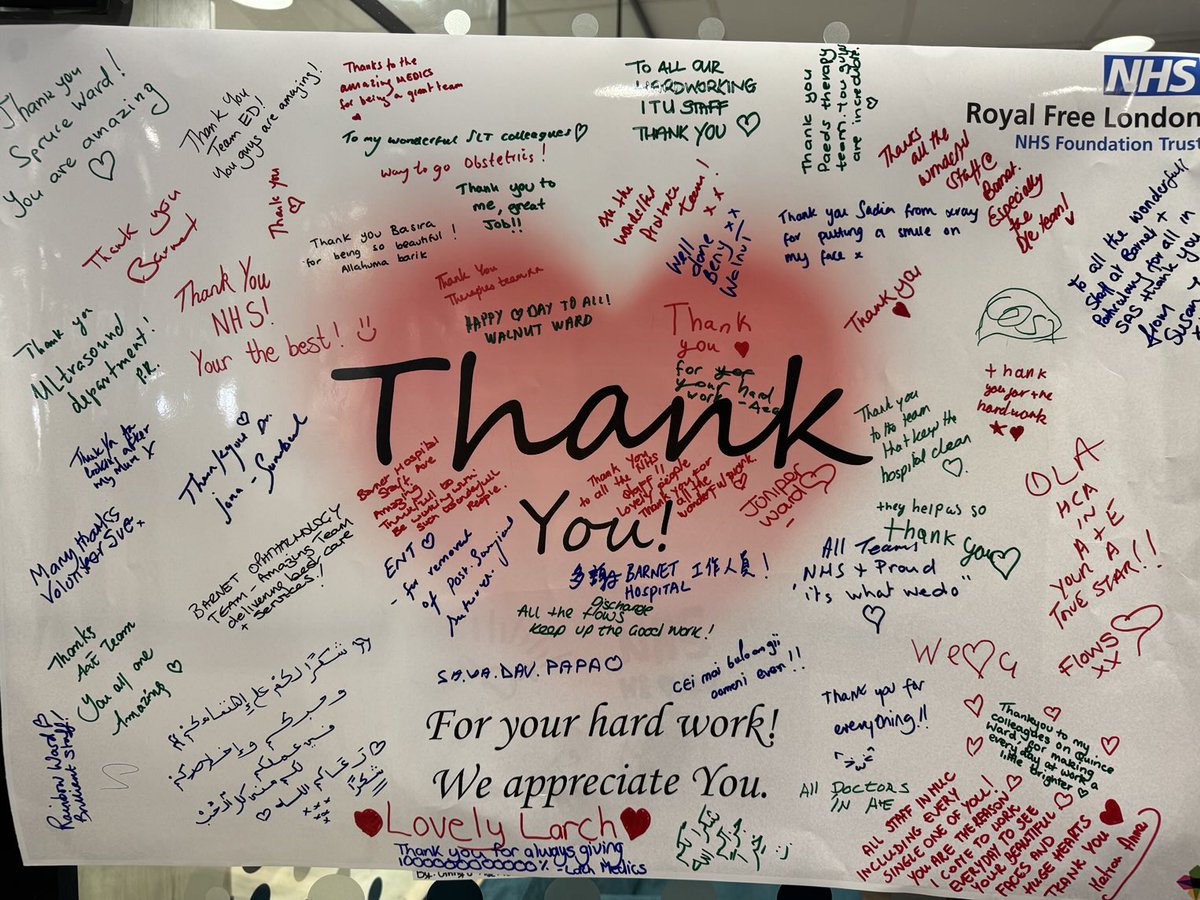 NHS
Royal Free London
NHS Foundation Trust
Thank you
Spruce Ward!
You are amazing
Thank You
Team ED!
You guys are amazing!
Thanks to the
amazing MEDICS
for being a great team
To my wonderful SLT colleagues
Way to go Obstetrics!
Thank you to
me, great
Job!!
TO ALL OUR
HARDWORKING
ITU STAFF
THANK YOU
Thank you
Paeds therapy
team. You guys
are incredible.
Thanks
all the
wonderful
Staff @
Barnet.
Especially
the
team!
To all the wonderfull
Staff at Barnet +
Particularly for all in
SAS thank you
from
Susan
Thank you
Barnet
Thank you
Thank you Basira
for being so beautiful!
Allahuma barik
All the
wonderful
team!
x x
Well
done
Beny xx
Walnut
Thank you Sadia from xray
for putting a smile on
my face x
Thank You
NHS!
Your the best!
Thank You
Therapies team xx
HAPPY DAY TO ALL!
WALNUT WARD
Thank
you
for your
your hard
work
Thank you
Thank you
Ultrasound
department!
P.R.
thank
you for the
hard work
Thank
You!
Thank you
to the team
that keep the
hospital clean
they help us so
thank you
looking after
my Mum x
Thank you Dr
Many thanks
Volunteer Sue x
BARNET OPHTHALMOLOGY
TEAM Amazing Team
delivering best care
+ services!!
Hospital
Staff Are
Amazing
Thankful to
Be working with
Such wonderfull
People.
Thank You
to all the NHS
Staff!!
Lovely people
Thank you for
all the
wonderful work.
Juniper
ward
ENT
- for removal
of Post-Surgical
OLA
HCA
IN
YOUR A+E
A
TRUE STAR!!
All Teams
NHS + Proud
"it's what we do"
BARNET 工作人員!
HOSPITAL
Discharge
All the flows
Keep up the Good work!
FLOWS
xx
Thanks
A+E Team
You all are
Amazing
SA.VA.DAV.PAPA
cei mai
oameni ever!!
شكرًا لكم على إهتمامكم
وحبكم وإخلاصكم
في عملكم
لكم منا كل الحب
شكرًا
For your hard work!
We appreciate You.
Thank you for
everything!!
Thankyou to my
colleagues on Quince
Ward, for making
every day at work a
little brighter
Rainbow Ward
Brilliant Staff!
All Doctors
IN A+E
ALL STAFF IN MUC
INCLUDING EVERY
SINGLE ONE OF YOU!
YOU ARE THE REASON
I COME TO WORK
EVERYDAY TO SEE
YOUR BEAUTIFUL
FACES AND
HUGE HEARTS
THANK YOU
Matron Anna
Lovely Larch
Thank you for always giving
100000000000% - Larch Medics